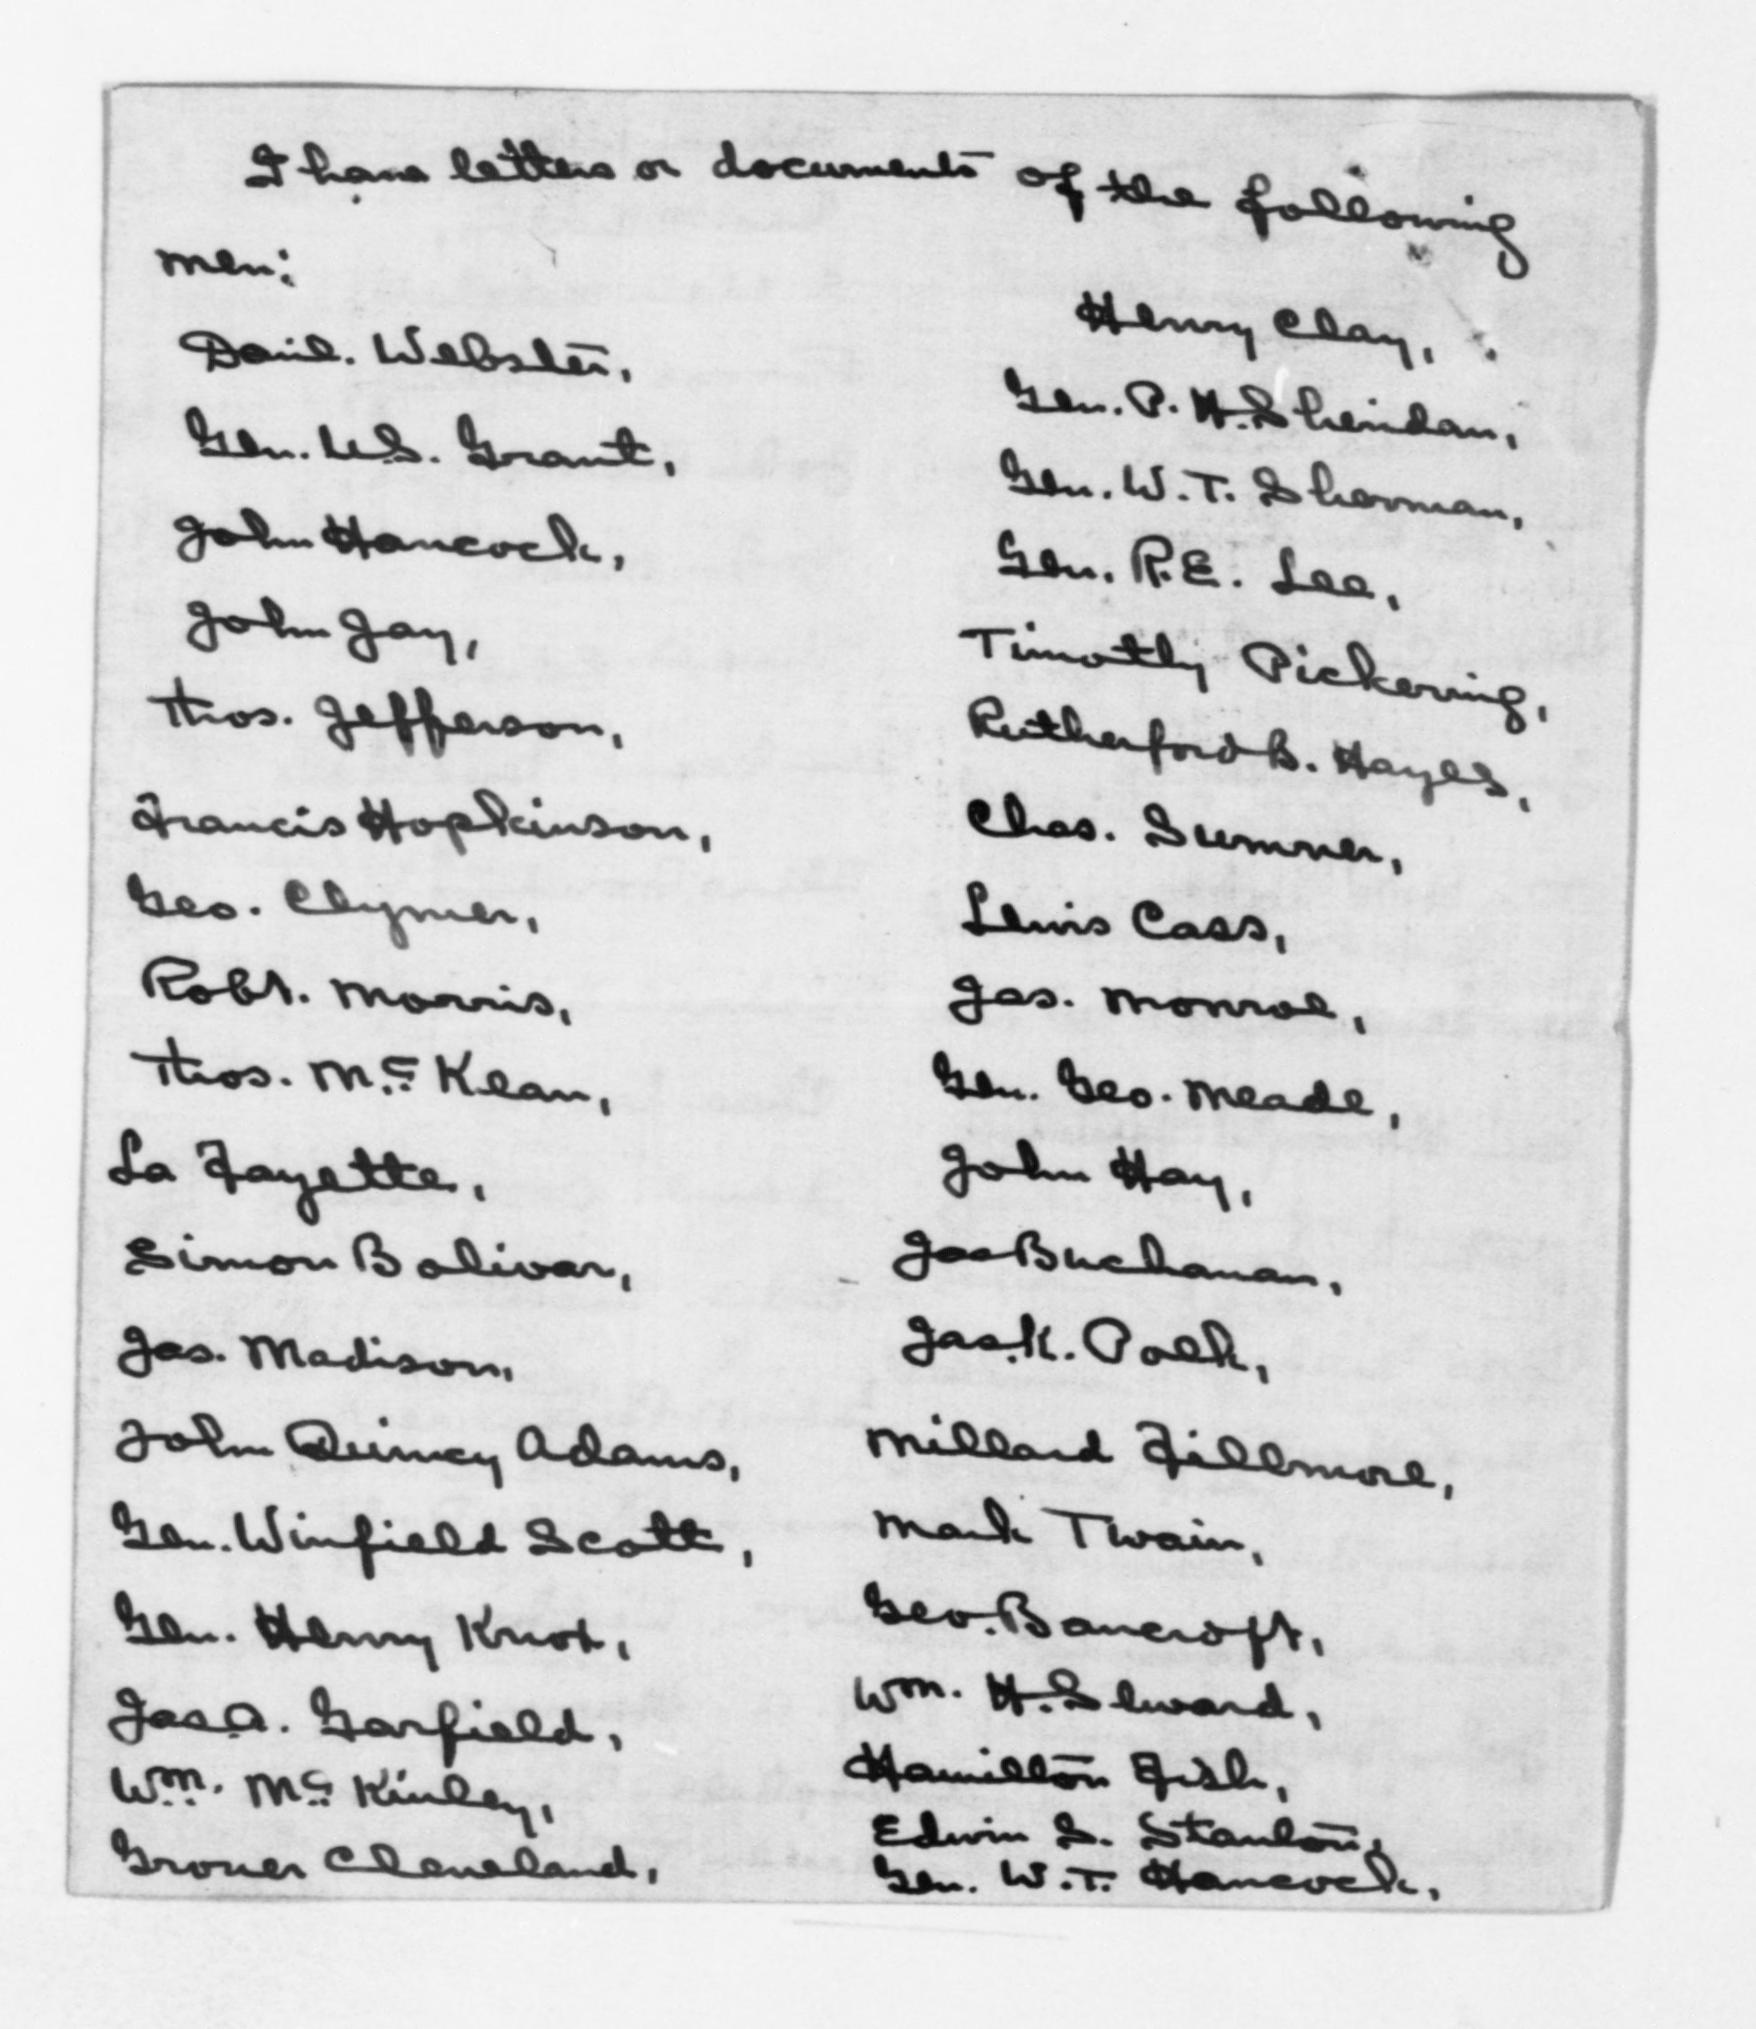 I have letters or documents of the following
men:
Danl. Webster,
Gen. U.S. Grant,
John Hancock,
John Jay,
Thos. Jefferson,
Francis Hopkinson,
Geo. Clymer,
Robt. Morris,
Thos. Mc Kean,
La Fayette,
Simon Bolivar,
Jas. Madison,
John Quincy Adams,
Gen. Winfield Scott,
Gen. Henry Knox,
Jas. A. Garfield,
Wm. Mc Kinley,
Grover Cleveland,
Henry Clay,
Gen. P. H. Sheridan,
Gen. W. T. Sherman,
Gen. R. E. Lee,
Timothy Pickering,
Rutherford B. Hayes,
Chas. Sumner,
Lewis Cass,
Jas. Monroe,
Gen. Geo. Meade,
John Hay,
Jas Buchanan,
Jas. K. Polk,
Millard Fillmore,
Mark Twain,
Geo. Bancroft,
Wm. H. Seward,
Hamilton Fish,
Edwin S. Stanton,
Gen. W. T. Hancock,